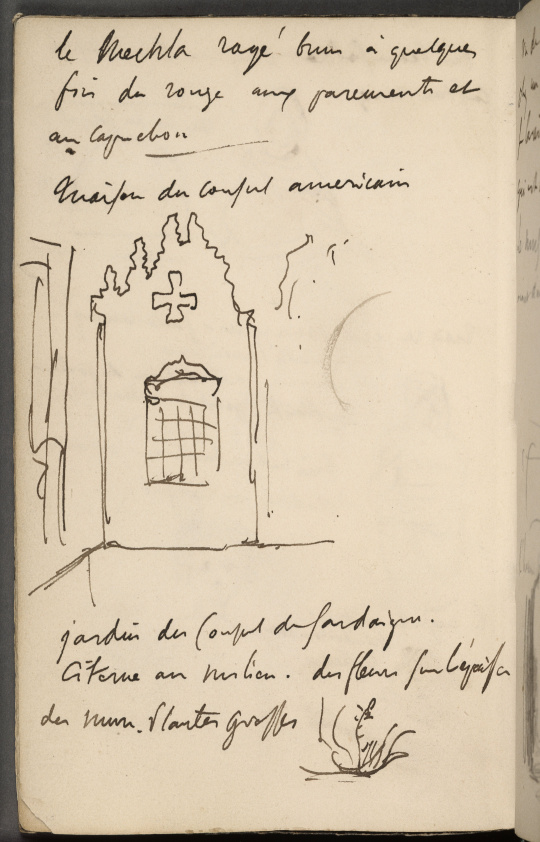 le Mechla rayé brun à quelques
fois du rouge aux parements et
au capuchon
Maison du consul americain
jardin du Consul de Sardaigne.
Citerne au milieu. des fleurs sur l'épaisse
des murs. Plantes grasses